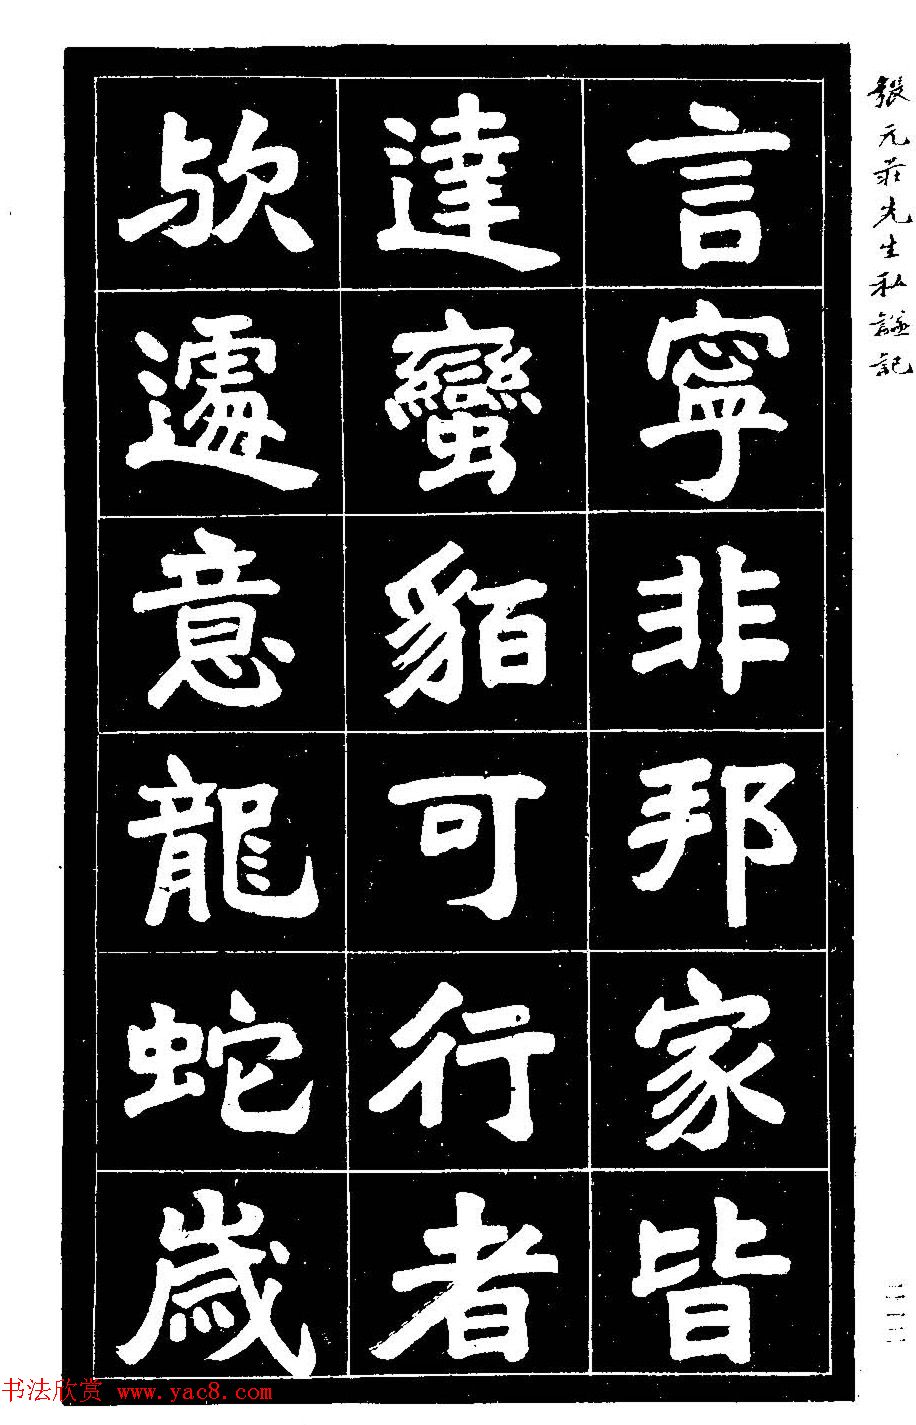 元莊先生私諡記
言寧非邦家皆
達蠻貊可行者
欤遽意龍蛇歲
书法欣赏 www.yac8.com